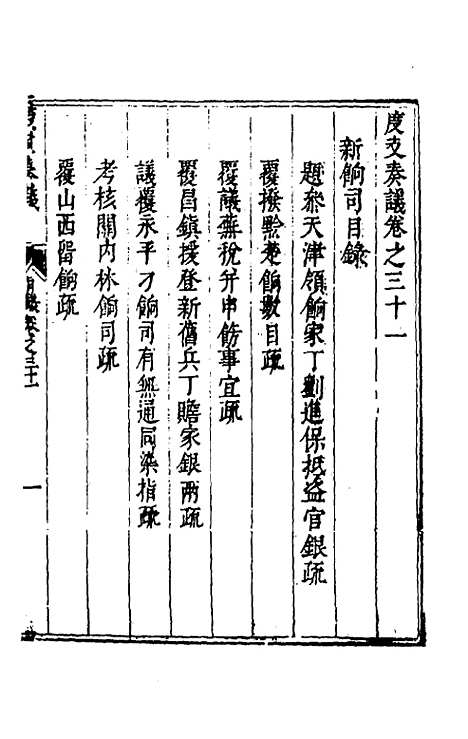 度支奏議卷之三十一
新餉司目錄
題參天津領餉家丁劉進保抵盜官銀疏
覆撥黔楚餉數目疏
覆議蕪稅并申飭事宜疏
覆昌鎮援登新舊兵丁贍家銀兩疏
議覆永平刁餉司有無通同染指疏
考核關內林餉司疏
覆山西留餉疏
度支奏議
目錄卷之三十一
一